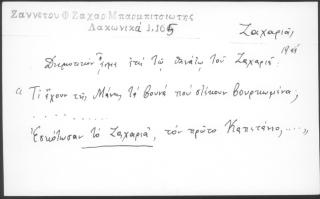 Ζαννέτου Φ Ζαχαρ Μπαρμπιτσιώτης
Λακωνικά 1,165
Ζαχαριᾶς,
Δημοτικὸν ἐπὶ τῷ θανάτῳ τοῦ Ζαχαριᾶ
"Τί ἔχουν τῆς Μάνης τὰ βουνὰ ποὺ στέκουν βουρκωμένα;
. . . . . . . .
Ἐσκότωσαν τὸ Ζαχαριᾶ, τὸν πρῶτο Καπετάνιο, ....."